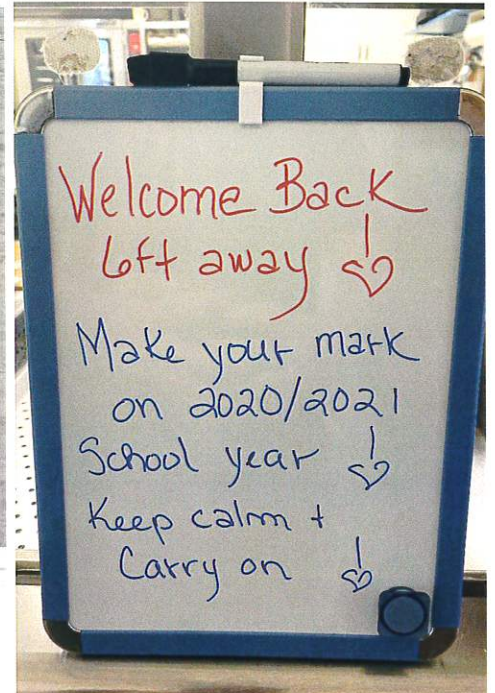 Welcome Back
6ft away
Make your mark
on 2020/2021
School year
Keep calm +
Carry on